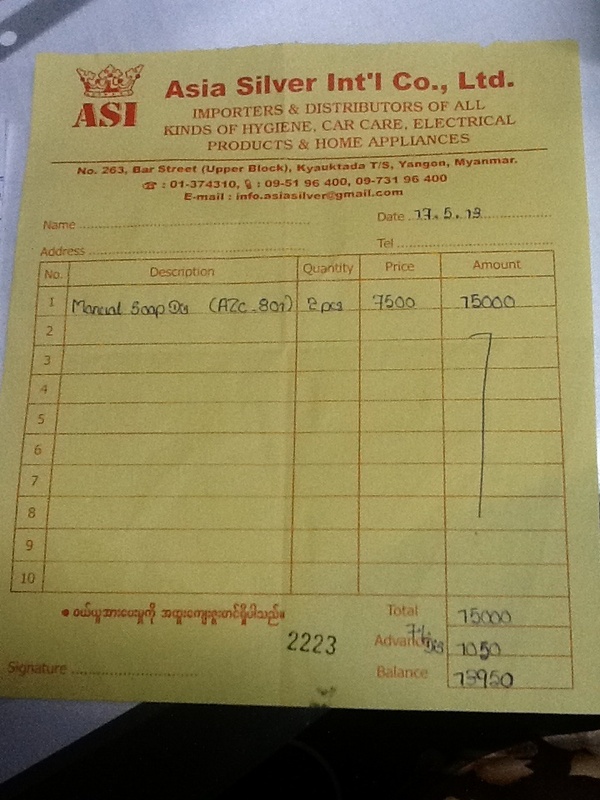 ASI
Asia Silver Int'l Co., Ltd.
IMPORTERS & DISTRIBUTORS OF ALL
KINDS OF HYGIENE, CAR CARE, ELECTRICAL
PRODUCTS & HOME APPLIANCES
No. 263, Bar Street (Upper Block), Kyauktada T/S, Yangon, Myanmar.
☎ : 01-374310, : 09-51 96 400, 09-731 96 400
E-mail : info.asiasilver@gmail.com
Name
Date 17.5.13
Address
Tel
No. Description Quantity Price Amount
1 Manual Soap Dis (AZc-801) 2 pcs 7500 15000
2
3
4
5
6
7
8
9
10
၀ယ်ယူအားပေးမှုကို အထူးကျေးဇူးတင်ရှိပါသည်။
Total 15000
2223
Advance 7% Dis 1050
Balance 13950
Signature